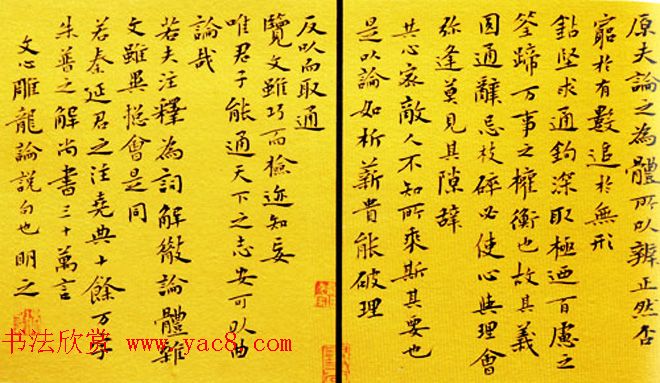 原夫論之為體所以辨正然否
窮於有數追於無形
鉆堅求通鉤深取極迺百慮之
筌蹄万事之權衡也故其義
圓通辭忌枝碎必使心與理會
弥逢莫見其隙辞
共心密敵人不知所乘斯其要也
是以論如析薪貴能破理
反以而取通
覽文雖巧而檢迹知妄
唯君子能通天下之志安可以曲
論哉
若夫注釋為詞解徹論體雜
文雖異揔會是同
若秦延君之注堯典十餘万字
朱普之解尚書三十萬言
文心雕龍論説句也明之
书法欣赏 www.yac8.com